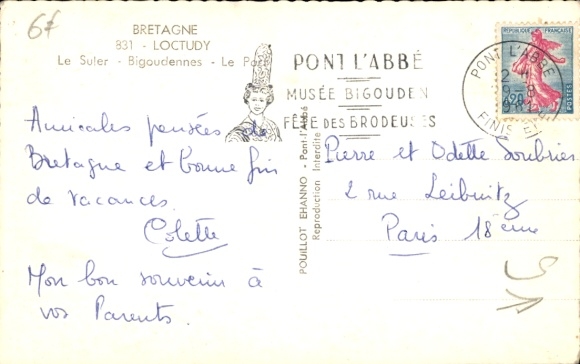 6f
BRETAGNE
831 - LOCTUDY
Le Suler - Bigoudennes - Le Port
PONT L'ABBÉ
MUSÉE BIGOUDEN
FÊTE DES BRODEUSES
REPUBLIQUE FRANÇAISE
POSTES
0,20
PONT L'ABBE
FINISTERE
Amicales pensées de
Bretagne et bonne fin
de vacances.
Colette
Mon bon souvenir à
vos Parents.
POUILLOT EHANNO - Pont-l'Abbé
Reproduction Interdite
Pierre et Odette Soubries
2 rue Leibnitz
Paris 18ème